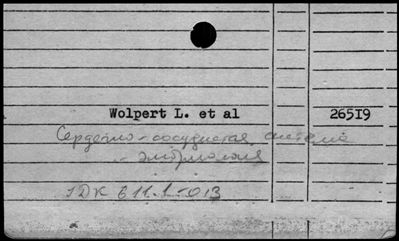 Wolpert L. et al 26519
Сердечно-сосудистая система
- эмбриология
УДК 611.1-013